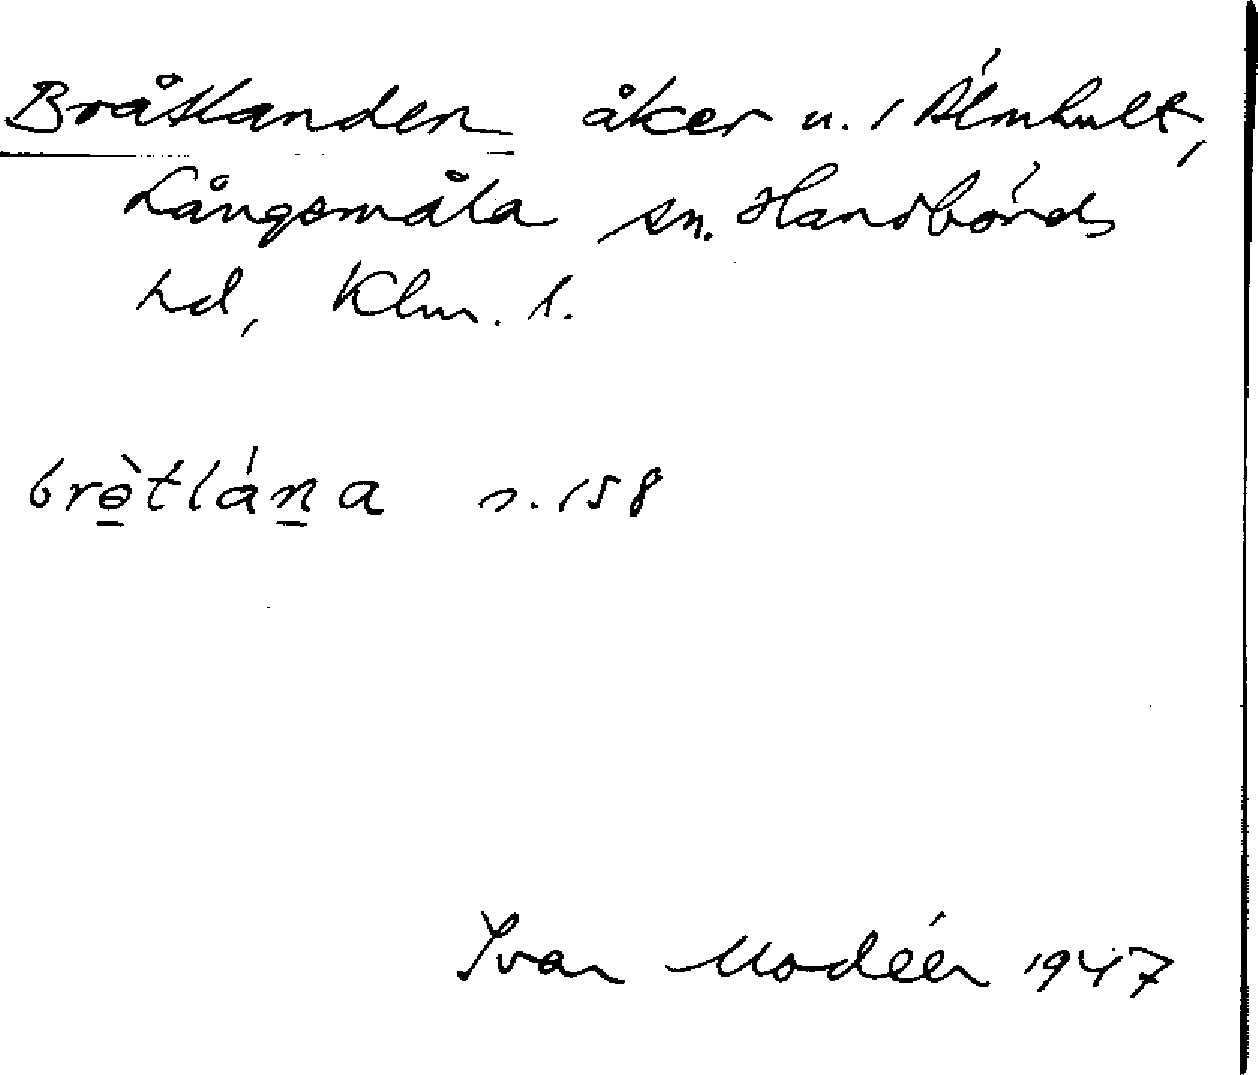 Bråtlanden åker u. 1 Älmhult,
Långsmåla sn. Handbörds
hd, Klm. l.
brə̀tlána s. 158
Ivar Modéer 1947